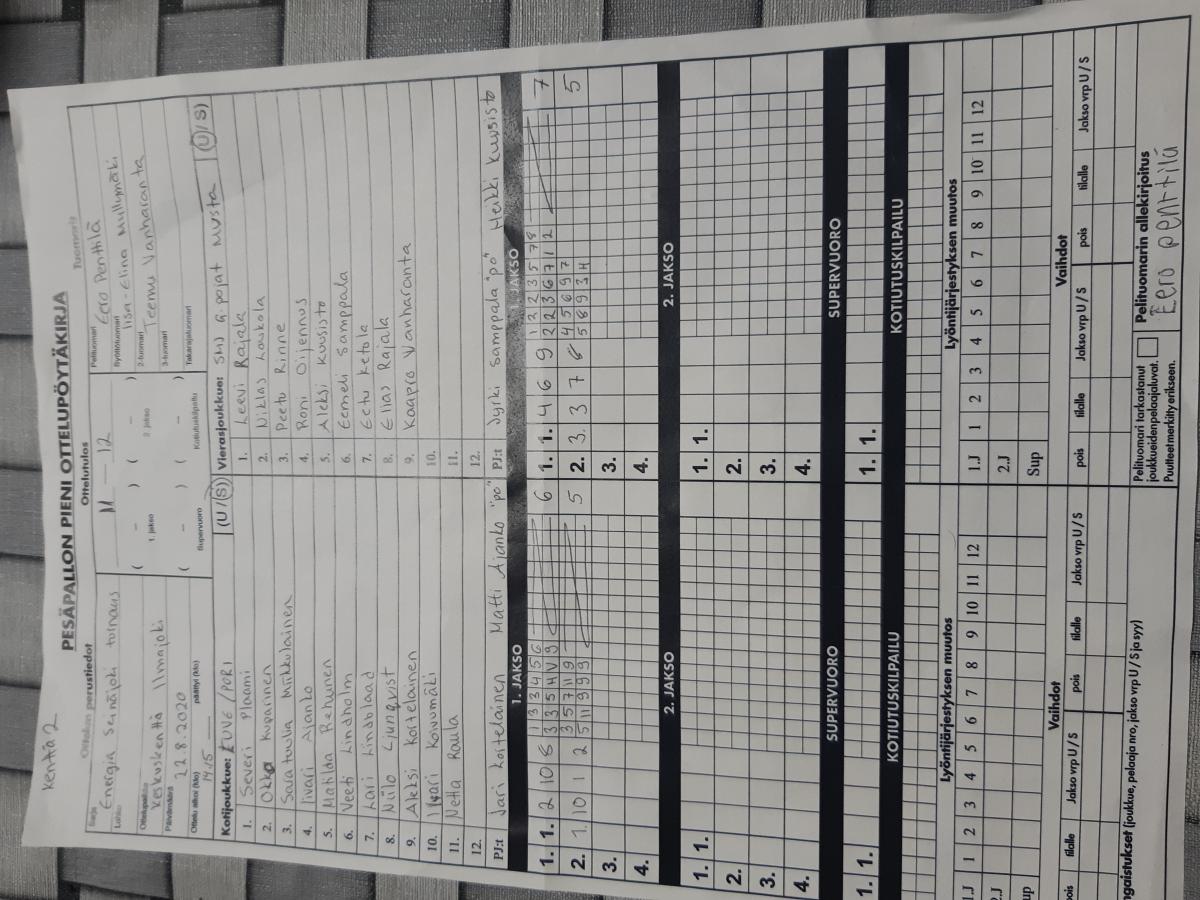 Kenttä 2
PESÄPALLON PIENI OTTELUPÖYTÄKIRJA
Ottelun perustiedot
Sarja
Energia Seinäjoki turnaus
Lohko
Ottelupaikka
Keskuskenttä Ilmajoki
Päivämäärä
22.8.2020
Ottelu alkoi (klo) päättyi (klo)
14.15
Ottelutulos
11 — 12
( – ) ( – )
1. jakso 2. jakso
( – ) ( – )
Supervuoro Kotiutuskilpailu
Tuomarit
Pelituomari
Eero Penttilä
Syöttötuomari
Iisa-Elina Mullymäki
2-tuomari
Teemu Vanharanta
3-tuomari
Takarajatuomari
Kotijoukkue: UVE/PORI (U/S)
1. Severi Plaami
2. Okko Kuparinen
3. Saratuulia Miikkulainen
4. Iivari Ajanko
5. Matilda Rehunen
6. Veeti Lindholm
7. Lari Lindblaad
8. Niilo Ljungkvist
9. Aleksi Koitelainen
10. Ilvari Koivumäki
11. Netta Raula
12.
PJ:t Jari Koitelainen Matti Ajanko "po"
Vierasjoukkue: SMJ G. pojat Musta (U/S)
1. Leevi Rajala
2. Niklas Laukola
3. Peetu Rinne
4. Roni Oijennus
5. Aleksi Kuusisto
6. Eemeli Samppala
7. Eetu Ketola
8. Elias Rajala
9. Kaapro Vanharanta
10.
11.
12.
PJ:t Jyrki Samppala "po" Heikki Kuusisto
1. JAKSO 1. JAKSO
1. 1. 2 10 6 6
2. 1. 10 1 2 5
3.
4.
1. 1. 4 6 9 7
2. 3. 3 7 8 5
3.
4.
2. JAKSO 2. JAKSO
1. 1. 1. 1.
2. 2.
3. 3.
4. 4.
SUPERVUORO SUPERVUORO
1. 1. 1. 1.
KOTIUTUSKILPAILU KOTIUTUSKILPAILU
Lyöntijärjestyksen muutos Lyöntijärjestyksen muutos
1.J 1 2 3 4 5 6 7 8 9 10 11 12 1.J 1 2 3 4 5 6 7 8 9 10 11 12
2.J 2.J
Sup Sup
Vaihdot Vaihdot
pois tilalle Jakso vrp U / S pois tilalle Jakso vrp U / S pois tilalle Jakso vrp U / S pois tilalle Jakso vrp U / S
ngaistukset (joukkue, pelaaja nro, jakso vrp U / S ja syy)
Pelituomari tarkastanut
joukkueiden pelaajaluvat.
Puutteet merkitty erikseen.
Pelituomarin allekirjoitus
Eero penttilä